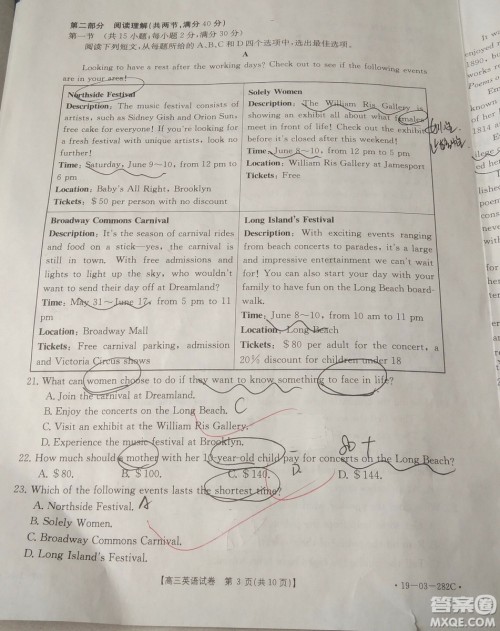 第二部分 阅读理解(共两节,满分40分)
第一节 (共15小题;每小题2分,满分30分)
阅读下列短文,从每题所给的A、B、C和D四个选项中,选出最佳选项。
A
Looking to have a rest after the working days? Check out to see if the following events
are in your area!
Northside Festival
Description: The music festival consists of
artists, such as Sidney Gish and Orion Sun,
free cake for everyone! If you're looking for
a fresh festival with unique artists, look no
further!
Time: Saturday, June 9-10, from 12 pm to
6 pm
Location: Baby's All Right, Brooklyn
Tickets: $50 per person with no discount
Solely Women
Description: The William Ris Gallery is
showing an exhibit all about what females
meet in front of life! Check out the exhibit
before it's closed after this weekend!
Time: June 8~10, from 12 pm to 5 pm
Location: William Ris Gallery at Jamesport
Tickets: Free
Broadway Commons Carnival
Description: It's the season of carnival rides
and food on a stick—yes, the carnival is
still in town. With free admissions and
lights to light up the sky, who wouldn't
want to send their day off at Dreamland?
Time: May 31—June 17, from 5 pm to 11
pm
Location: Broadway Mall
Tickets: Free carnival parking, admission
and Victoria Circus shows
Long Island's Festival
Description: With exciting events ranging
from beach concerts to parades, it's a large
and impressive entertainment we can't wait
for! You can also start your day with your
family to have fun on the Long Beach board-
walk.
Time: June 8-10, from 10 am to 11 pm
Location: Long Beach
Tickets: $80 per adult for the concert, a
20% discount for children under 18
21. What can women choose to do if they want to know something to face in life?
A. Join the carnival at Dreamland.
B. Enjoy the concerts on the Long Beach. C
C. Visit an exhibit at the William Ris Gallery.
D. Experience the music festival at Brooklyn.
80+
22. How much should a mother with her 10-year-old child pay for concerts on the Long Beach?
A. $80. B. $100. C. $140. D. $144.
D
23. Which of the following events lasts the shortest time?
A. Northside Festival. A
B. Solely Women.
C. Broadway Commons Carnival.
D. Long Island's Festival.
【高三英语试卷 第3页(共10页)】
·19-03-282C·
答案圈
MXQE.COM